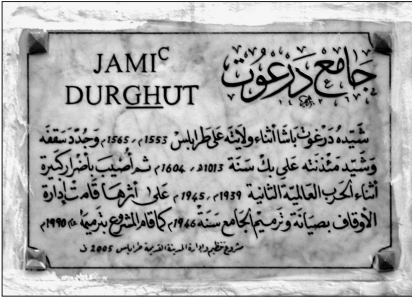 JAMIᶜ
DURGHUT
جامع درغوت
شيده درغوت باشا أثناء ولايته على طرابلس 1553م/1565م وجدد سقفه
وشيد مئذنته علي بك سنة 1013هـ/1604م ثم أصيب بأضرار كبيرة
أثناء الحرب العالمية الثانية 1939م/1945م على أثرها قامت إدارة
الأوقاف بصيانة وترميم الجامع سنة 1946م كما قام المشروع بترميمه عام 1990م
مشروع تنظيم وإدارة المدينة القديمة طرابلس 2005 ف